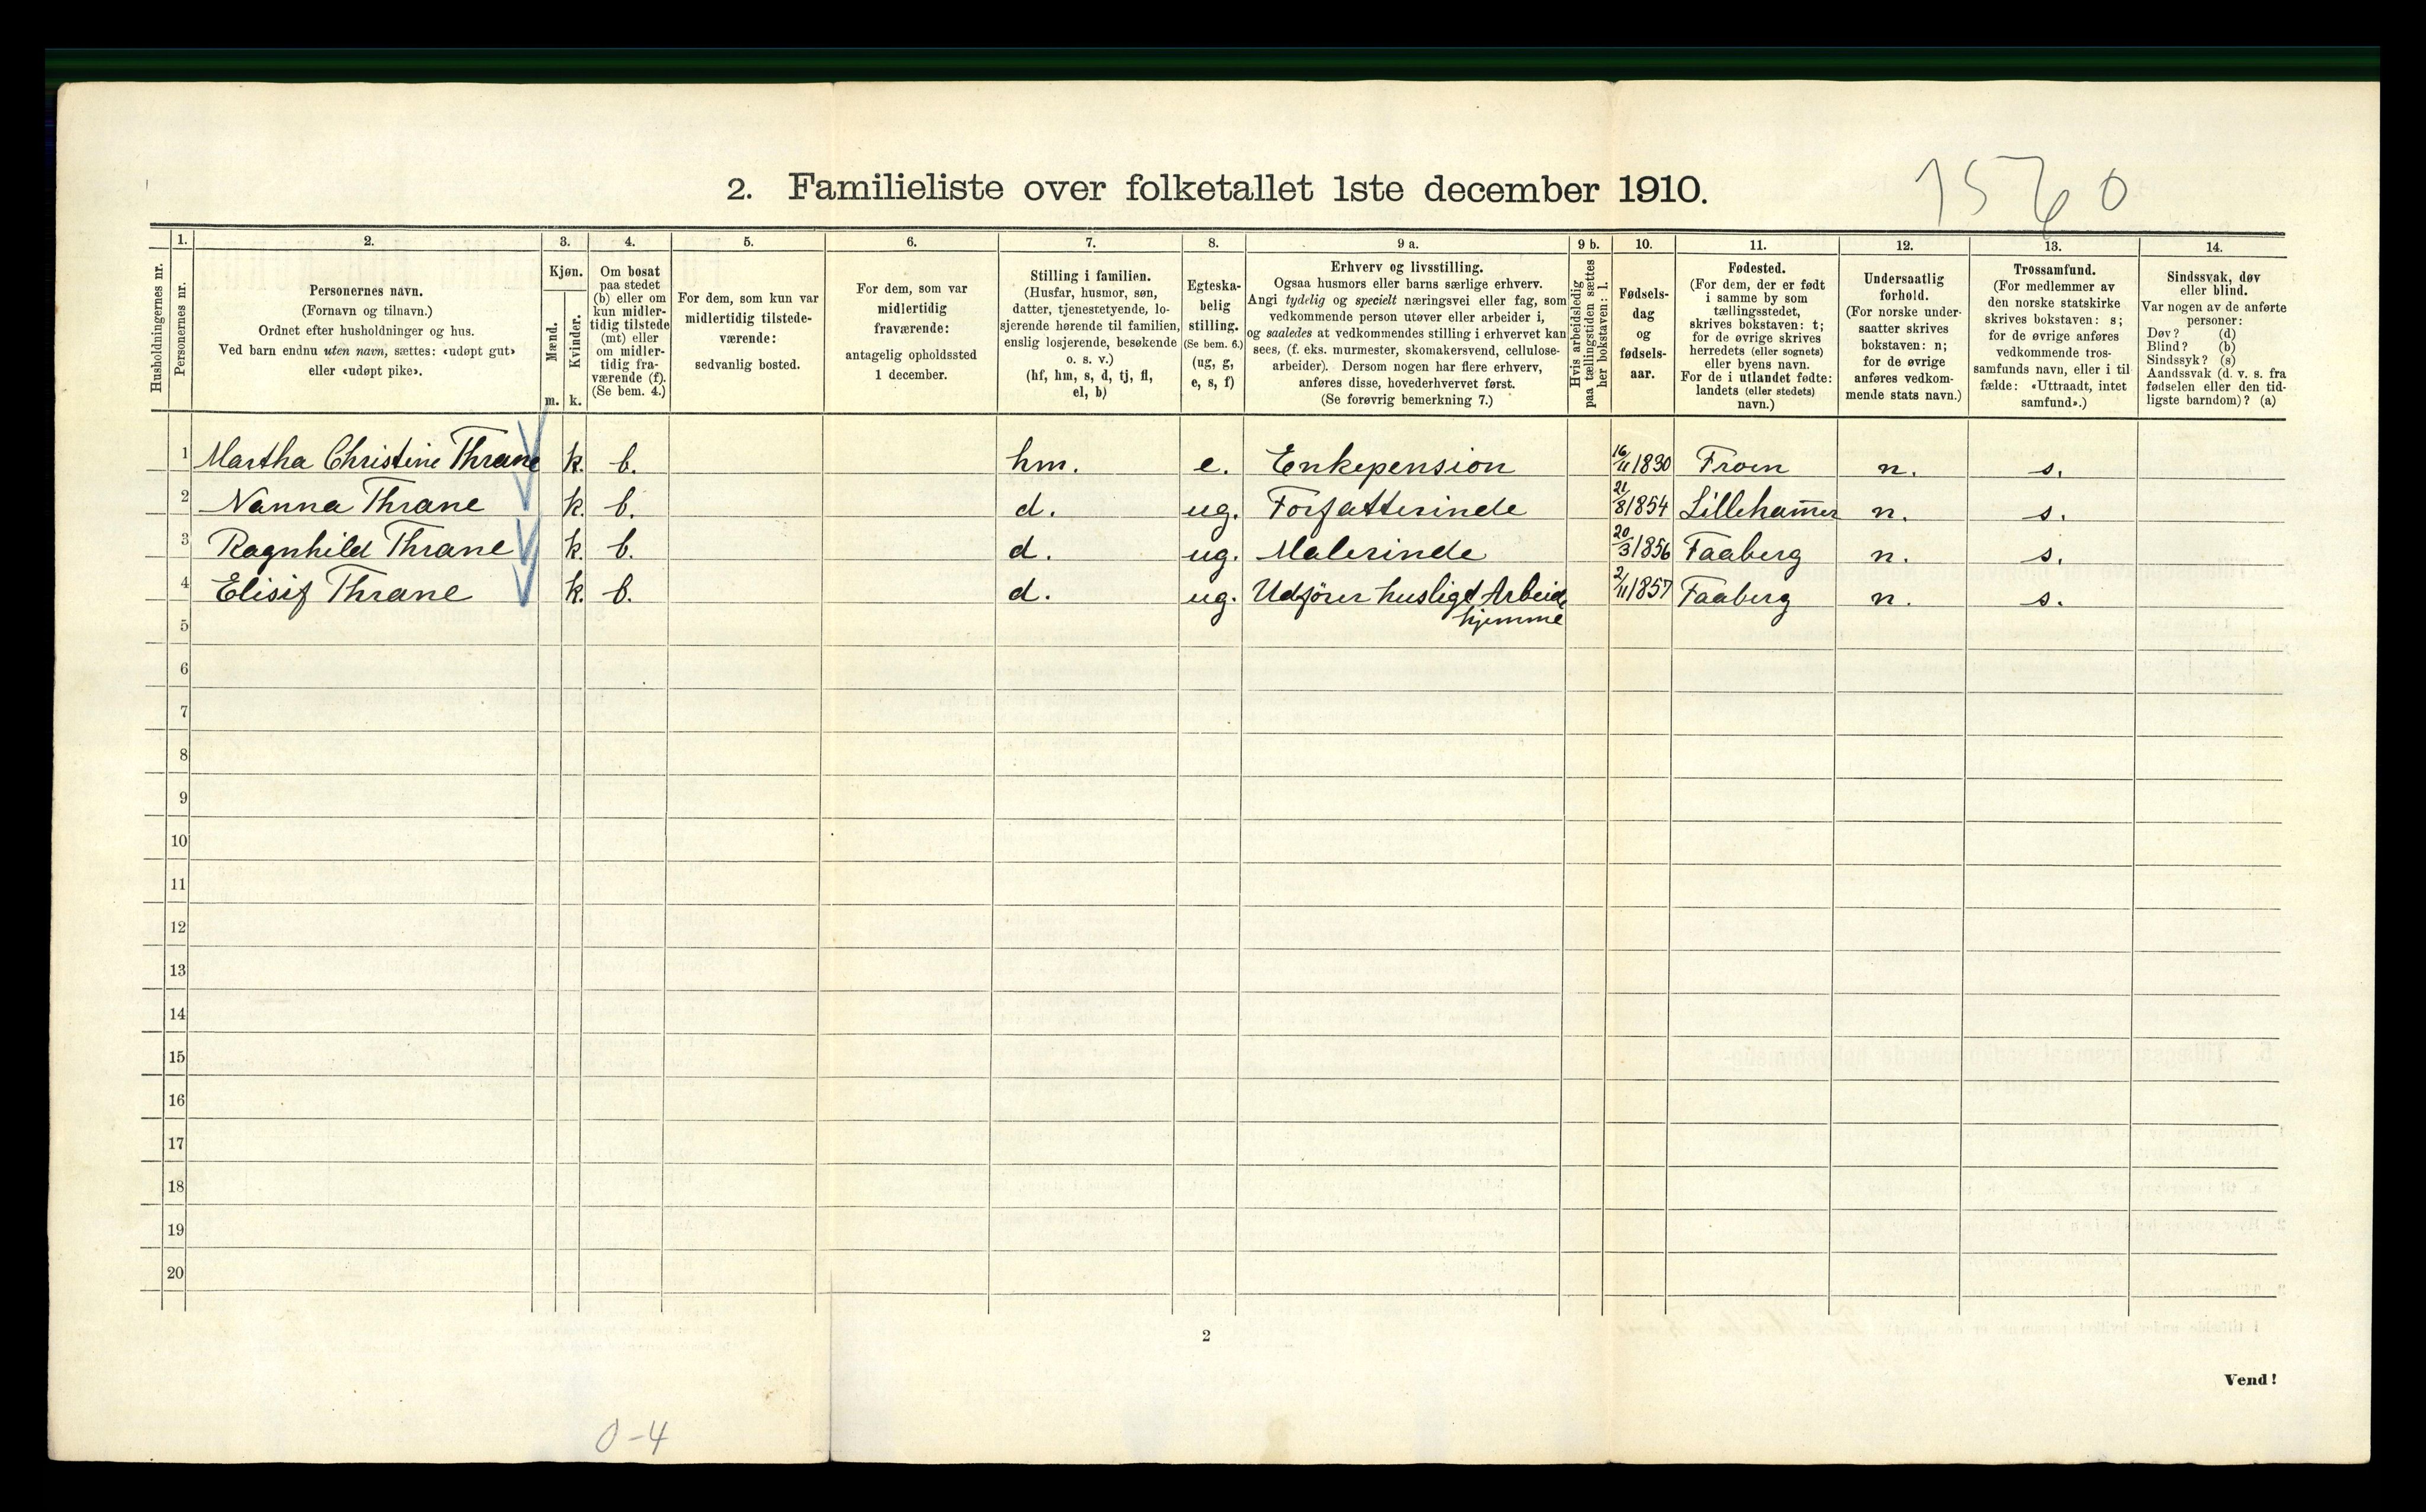 1560
2. Familieliste over folketallet 1ste december 1910.
Husholdningernes nr.
1.
Personernes nr.
2.
Personernes navn.
(Fornavn og tilnavn.)
Ordnet efter husholdninger og hus.
Ved barn endnu uten navn, sættes: «udøpt gut»
eller «udøpt pike».
3.
Kjøn.
Mænd.
Kvinder.
m. k.
4.
Om bosat
paa stedet
(b) eller om
kun midler-
tidig tilstede
(mt) eller
om midler-
tidig fra-
værende (f).
(Se bem. 4.)
5.
For dem, som kun var
midlertidig tilstede-
værende:
sedvanlig bosted.
6.
For dem, som var
midlertidig
fraværende:
antagelig opholdssted
1 december.
7.
Stilling i familien.
(Husfar, husmor, søn,
datter, tjenestetyende, lo-
sjerende hørende til familien,
enslig losjerende, besøkende
o. s. v.)
(hf, hm, s, d, tj, fl,
el, b)
8.
Egteska-
belig
stilling.
(Se bem. 6.)
(ug, g,
e, s, f)
9 a.
Erhverv og livsstilling.
Ogsaa husmors eller barns særlige erhverv.
Angi tydelig og specielt næringsvei eller fag, som
vedkommende person utøver eller arbeider i,
og saaledes at vedkommendes stilling i erhvervet kan
sees, (f. eks. murmester, skomakersvend, cellulose-
arbeider). Dersom nogen har flere erhverv,
anføres disse, hovederhvervet først.
(Se forøvrig bemerkning 7.)
9 b.
Hvis arbeidsledig
paa tællingstiden sættes
her bokstaven: l.
10.
Fødsels-
dag
og
fødsels-
aar.
11.
Fødested.
(For dem, der er født
i samme by som
tællingsstedet,
skrives bokstaven: t;
for de øvrige skrives
herredets (eller sognets)
eller byens navn.
For de i utlandet fødte:
landets (eller stedets)
navn.)
12.
Undersaatlig
forhold.
(For norske under-
saatter skrives
bokstaven: n;
for de øvrige
anføres vedkom-
mende stats navn.)
13.
Trossamfund.
(For medlemmer av
den norske statskirke
skrives bokstaven: s;
for de øvrige anføres
vedkommende tros-
samfunds navn, eller i til
fælde: «Uttraadt, intet
samfund».)
14.
Sindssvak, døv
eller blind.
Var nogen av de anførte
personer:
Døv? (d)
Blind? (b)
Sindssyk? (s)
Aandssvak (d. v. s. fra
fødselen eller den tid-
ligste barndom)? (a)
1 Martha Christine Thrane k. b. hm. e. Enkepension 16/11 1830 Fron n. s.
2 Nanna Thrane k. b. d. ug. Forfatterinde 21/8 1854 Lillehamer n. s.
3 Ragnhild Thrane k. b. d. ug. Malerinde 20/3 1856 Faaberg n. s.
4 Elisif Thrane k. b. d. ug. Udfører husligt Arbeide 2/11 1857 Faaberg n. s.
hjemme
5
6
7
8
9
10
11
12
13
14
15
16
17
18
19
20
2
Vend!
0-4